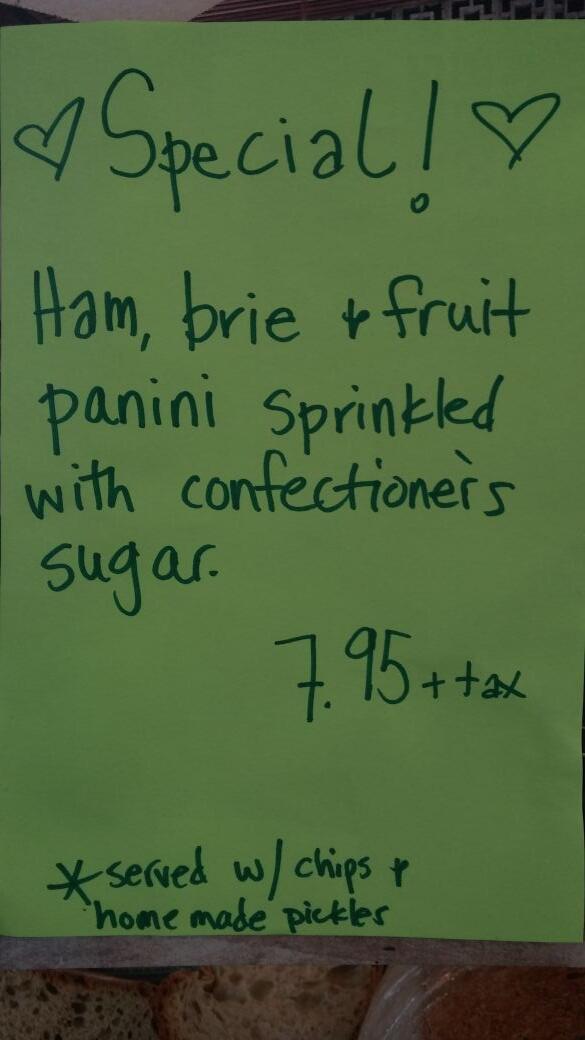 ♡ Special! ♡
Ham, brie + fruit
panini sprinkled
with confectioner's
sugar.
7.95 + tax
* served w/ chips +
home made pickles